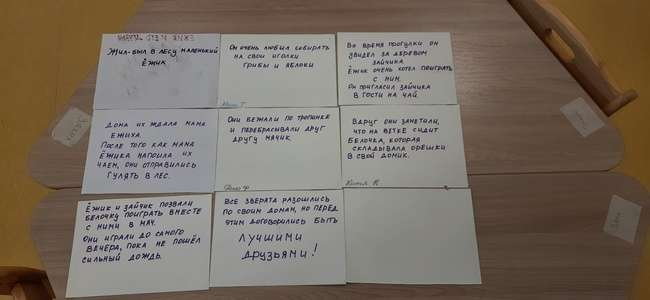 Жил-был в лесу маленький
Ёжик
Он очень любил собирать
на свои иголки
грибы и яблоки
Во время прогулки он
увидел за деревом
зайчика.
Ёжик очень хотел поиграть
с ним.
Он пригласил зайчика
в гости на чай.
Дома их ждала мама
Ежиха.
После того как мама
Ёжика напоила их
чаем, они отправились
гулять в лес.
Они бежали по тропинке
и перебрасывали друг
другу мячик.
Вдруг они заметили,
что на ветке сидит
Белочка, которая
складывала орешки
в свой домик.
Ёжик и зайчик позвали
белочку поиграть вместе
с ними в мяч.
Они играли до самого
вечера, пока не пошёл
сильный дождь.
Все зверята разошлись
по своим домам, но перед
этим договорились быть
лучшими
друзьями!